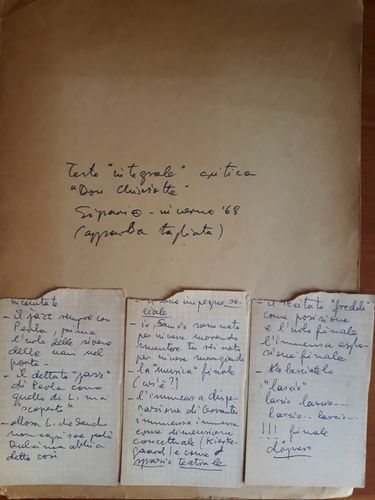 Testo "integrale" critica
"Don Chisciotte"
Sipario - inverno '68
(apparsa tagliata)
- il jazz sempre con
Perla, prima
l'urlo delle
delle mani nel
- il dettato "jazz"
di Perla como
quello di L. ma
"scoperto"
- allora L. che Sancho
non capisce
Dulsinea abbia
detto così
impegno so-
ciale
- io, Sancio sono nato
per vivere morendo
mentre tu sei nato
per vivere mangiando
- la "musica" finale
(cos'è?)
- l'immensa dispe-
razione di Cervantes
immensa immensa
come dimensione
concettuale (Kierke-
gaard) e come
spazio teatrale
- il recitato "freddo"
come posizione
e l'urlo finale
l'immensa esplo-
sione finale
"lascio"
lascio lascio --
lascio -- lascio --
!!! finale